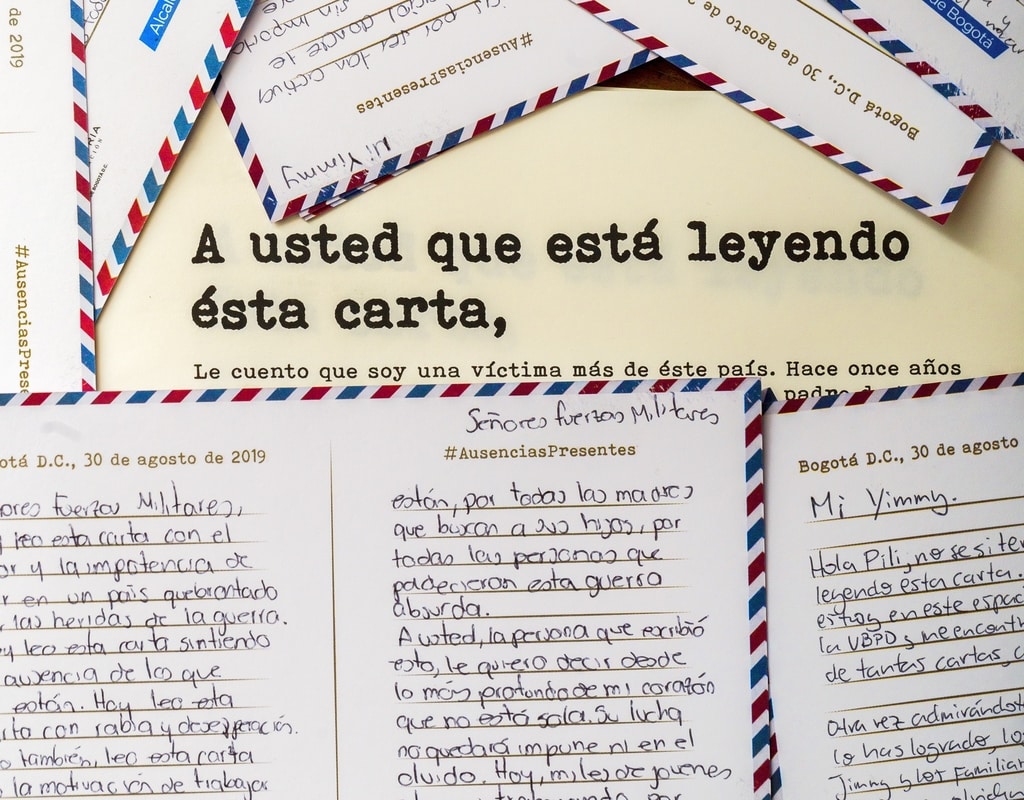 de 2019
#AusenciasPrese
Alcal
Mi Yimmy
#AusenciasPresentes
tan activa
sin importa
Bogotá D.C., 30 de agosto de 2
de Bogotá
A usted que está leyendo
ésta carta,
Le cuento que soy una víctima más de éste país. Hace once años
padre
otá D.C., 30 de agosto de 2019
ores fuerzas Militares,
y leo esta carta con el
or y la impotencia de
r en un país quebrantado
las heridas de la guerra.
y leo esta carta sintiendo
ausencia de los que
están. Hoy leo esta
rta con rabia y desesperación.
o también, leo esta carta
la motivación de trabajar
Señores fuerzas Militares
#AusenciasPresentes
están, por todas las madres
que buscan a sus hijos, por
todas las personas que
padecieron esta guerra
absurda.
A usted, la persona que escribió
esto, le quiero decir desde
lo más profundo de mi corazón
que no está sola. Su lucha
no quedará impune ni en el
olvido. Hoy, miles de jovenes
por
Bogotá D.C., 30 de agosto
Mi Yimmy.
Hola Pili, no se si te
leyendo esta carta.
estoy en este espac
la UBPD y me encontr
de tantas cartas, c
Otra vez admirándot
lo has logrado, los
Jimmy y los Familiar